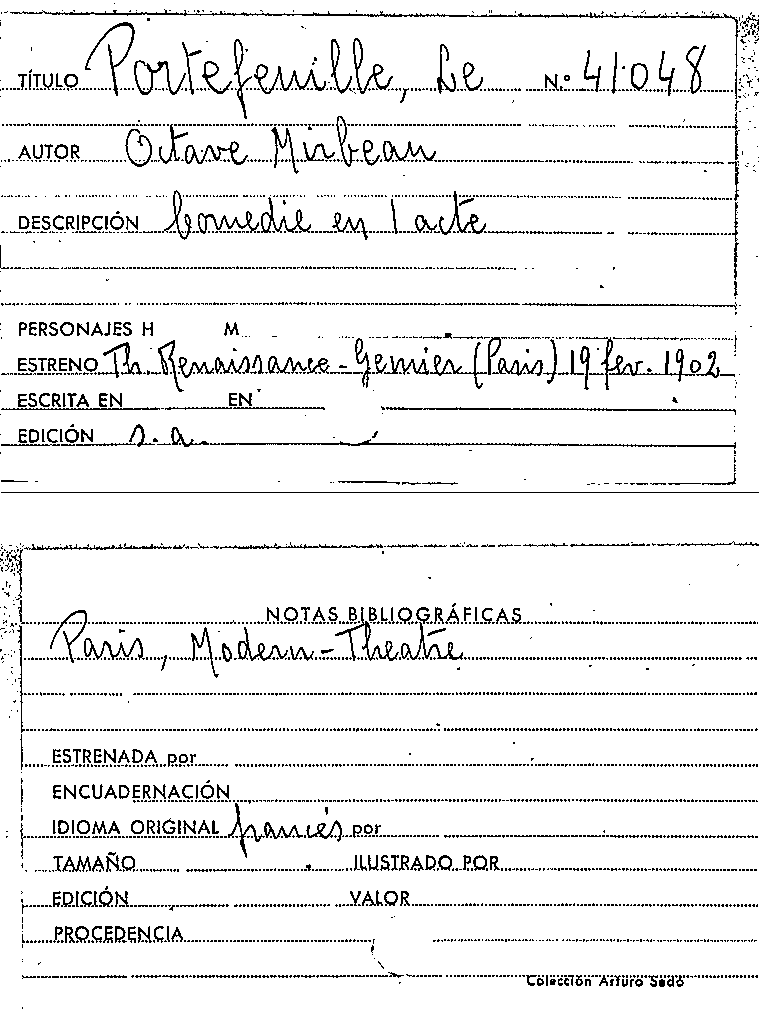 TÍTULO Portefeuille, Le N.º 41.048
AUTOR Octave Mirbeau
DESCRIPCIÓN Comedie en 1 acte
PERSONAJES H M
ESTRENO Th. Renaissance-Gemier (Paris) 19 fev. 1902
ESCRITA EN EN
EDICIÓN s. a.
NOTAS BIBLIOGRÁFICAS
Paris, Modern-Theatre
ESTRENADA por
ENCUADERNACIÓN
IDIOMA ORIGINAL francés por
TAMAÑO ILUSTRADO POR
EDICIÓN VALOR
PROCEDENCIA
Colección Arturo Sedó